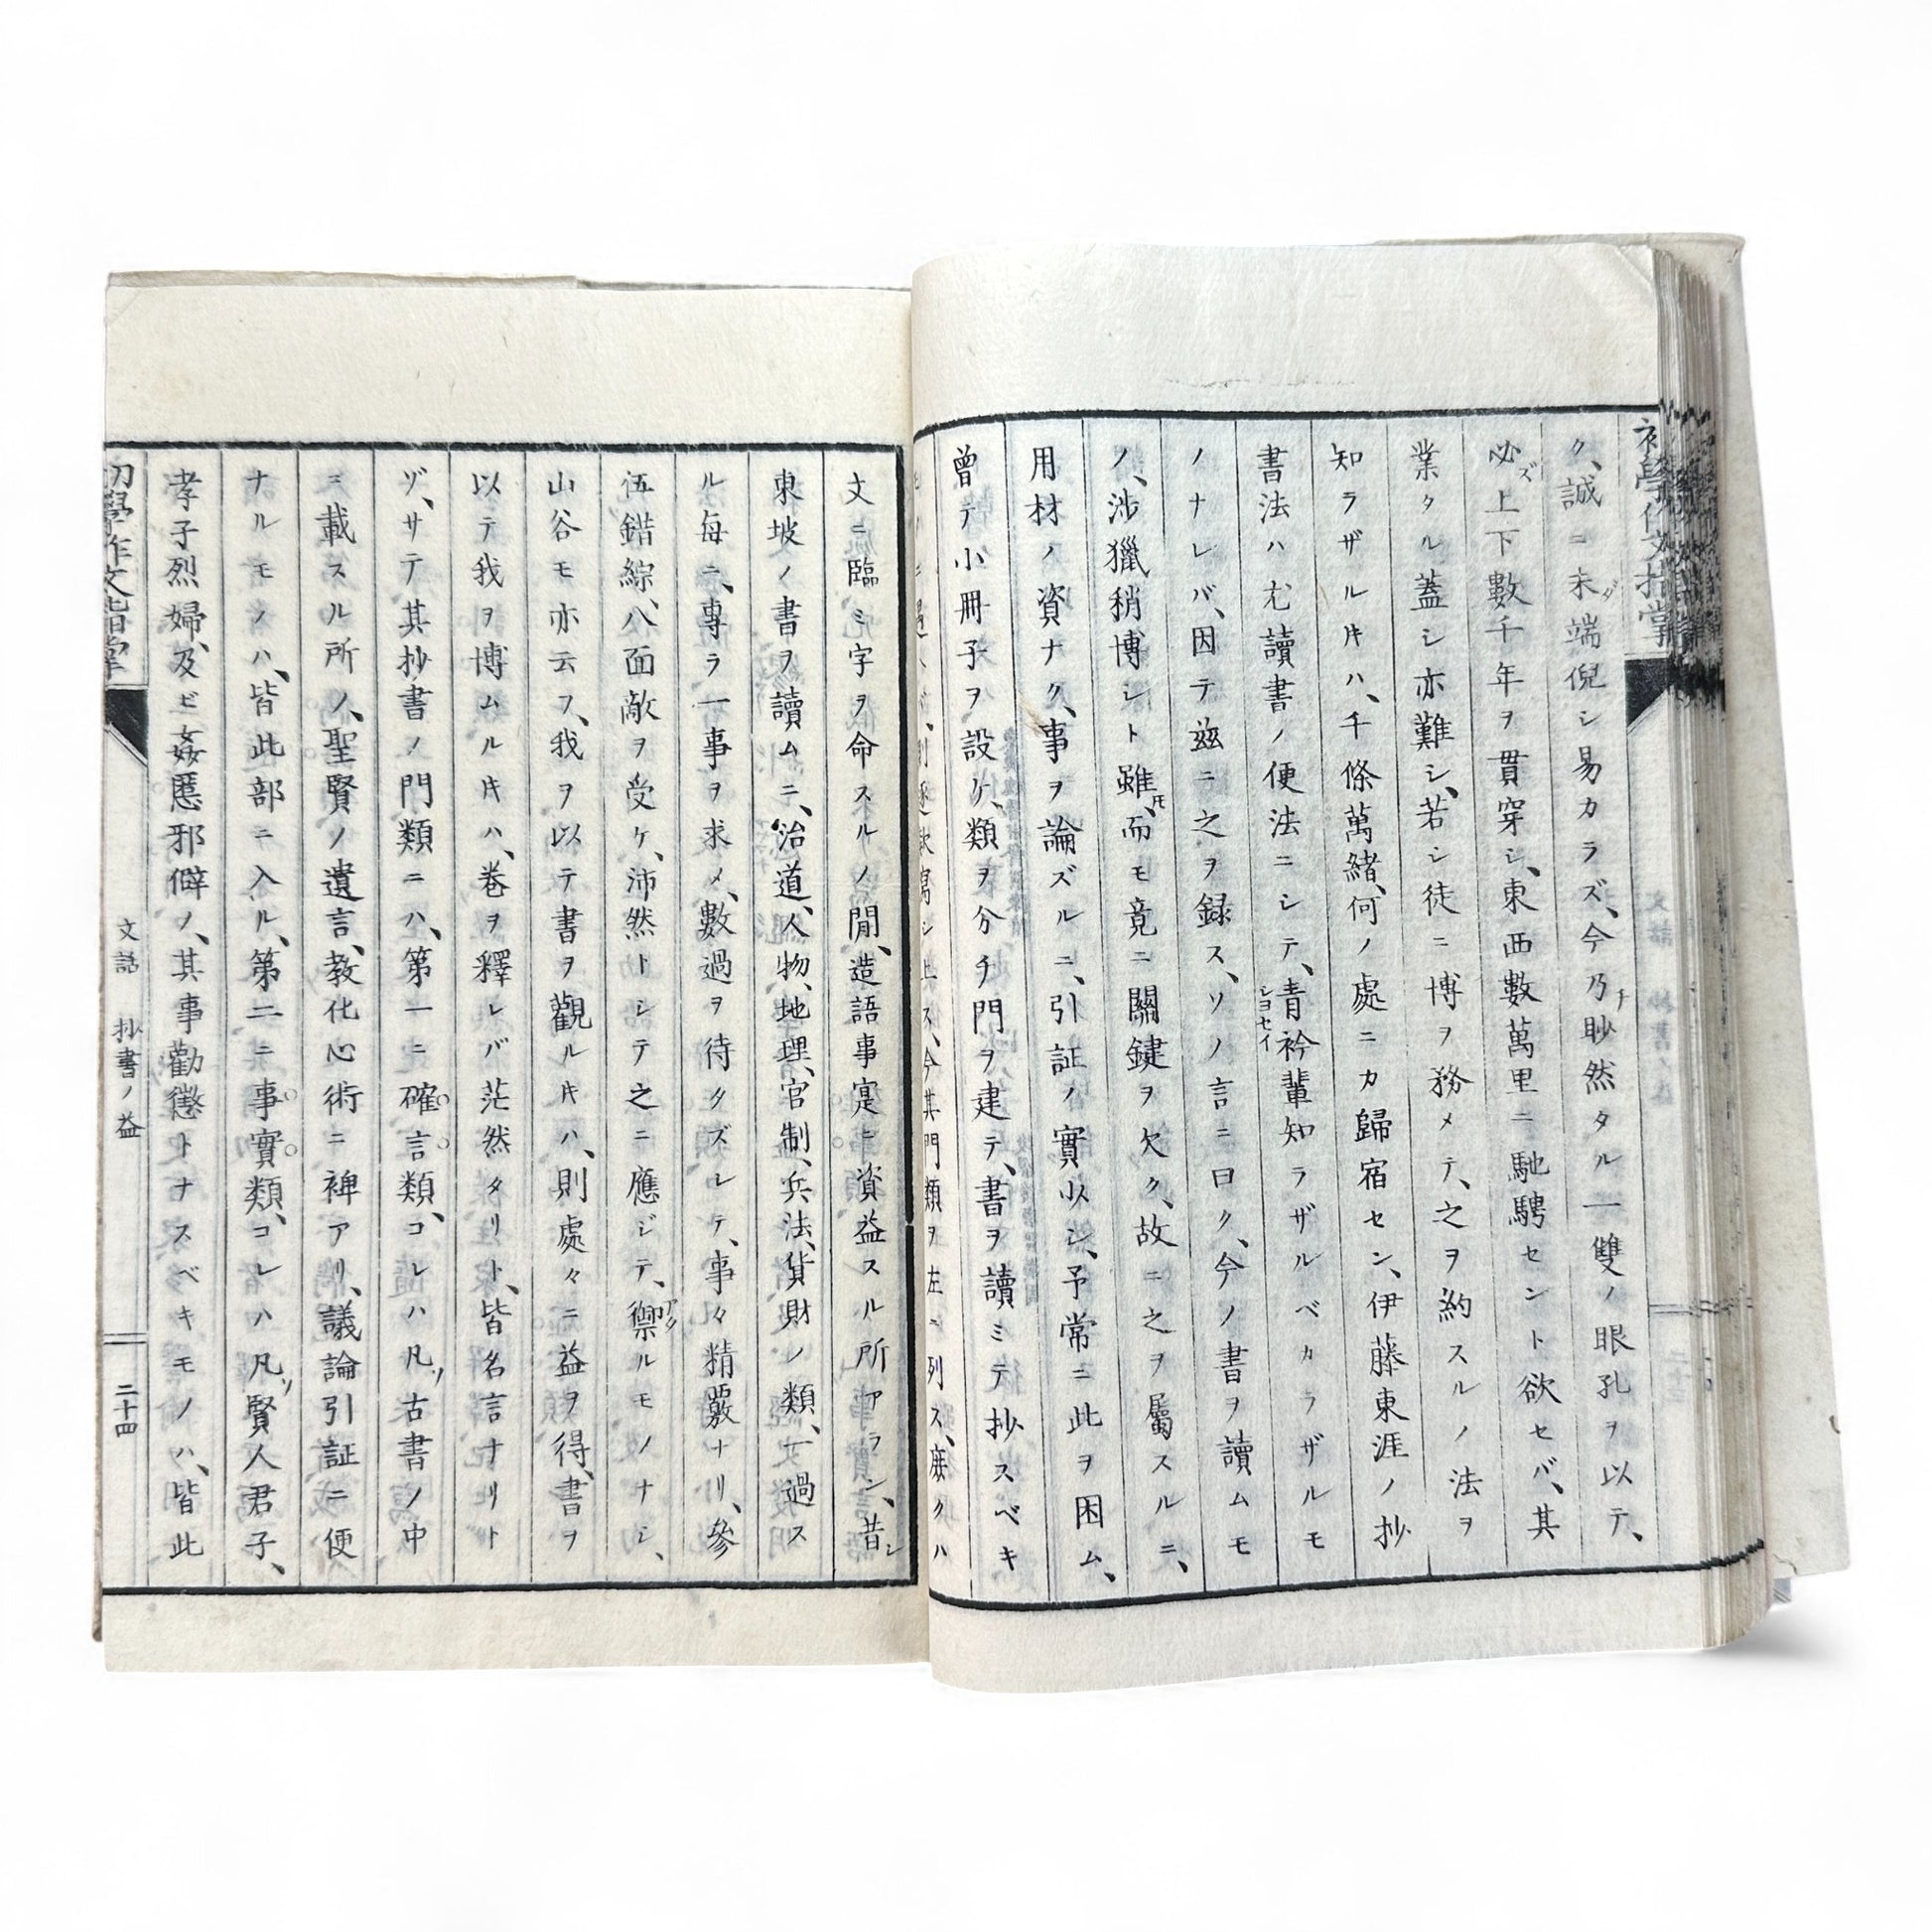 ク、誠ニ未ダ端倪シ易カラズ、今乃チ眇然タル一雙ノ眼孔ヲ以テ、
必ズ上下數千年ヲ貫穿シ、東西數萬里ニ馳騁セント欲セバ、其
業タル蓋シ亦難シ、若シ徒ニ博ヲ務メテ、之ヲ約スルノ法ヲ
知ラザル𪜈ハ、千條萬緒、何ノ處ニカ歸宿セン、伊藤東涯ノ抄
書法ハ尤讀書ノ便法ニシテ、青衿輩知ラザルベカラザルモ
ショセイ
ノナレバ、因テ茲ニ之ヲ録ス、ソノ言ニ曰ク、今ノ書ヲ讀ムモ
ノ、涉獵稍博シト雖𪜈、而モ竟ニ關鍵ヲ欠ク、故ニ之ヲ屬スルニ、
用材ノ資ナク、事ヲ論ズルニ、引証ノ實少シ、予常ニ此ヲ困ム、
曾テ小冊子ヲ設ケ、類ヲ分チ門ヲ建テ、書ヲ讀ミテ抄スベキ
今其門類ヲ左ニ列ス、庶クハ
文ニ臨ミ字ヲ命スルノ閒、造語事寔ニ資益スル所アラン、昔シ
東坡ノ書ヲ讀ムニ、治道、人物、地理、官制、兵法、貨財ノ類、一過ス
ル毎ニ、專ラ一事ヲ求メ、數過ヲ待タズシテ、事々精覈ナリ、參
伍錯綜、八面敵ヲ受ケ、沛然トシテ之ニ應ジテ、禦ルモノナシ、
山谷モ亦云フ、我ヲ以テ書ヲ觀ル𪜈ハ、則處々ニ益ヲ得、書ヲ
以テ我ヲ博ムル𪜈ハ、巻ヲ釋レバ茫然タリト、皆名言ナリト
ゾ、サテ其抄書ノ門類ニハ、第一ニ確言類、コレハ凡ソ古書ノ中
ニ載スル所ノ、聖賢ノ遺言、教化心術ニ裨アリ、議論引証ニ便
ナルモノハ、皆此部ニ入ル、第二ニ事實類、コレハ凡ソ賢人君子、
孝子烈婦、及ビ姦慝邪僻ノ、其事勸懲トナスベキモノハ、皆此
初學作文指掌
文話 抄書ノ益
二十四